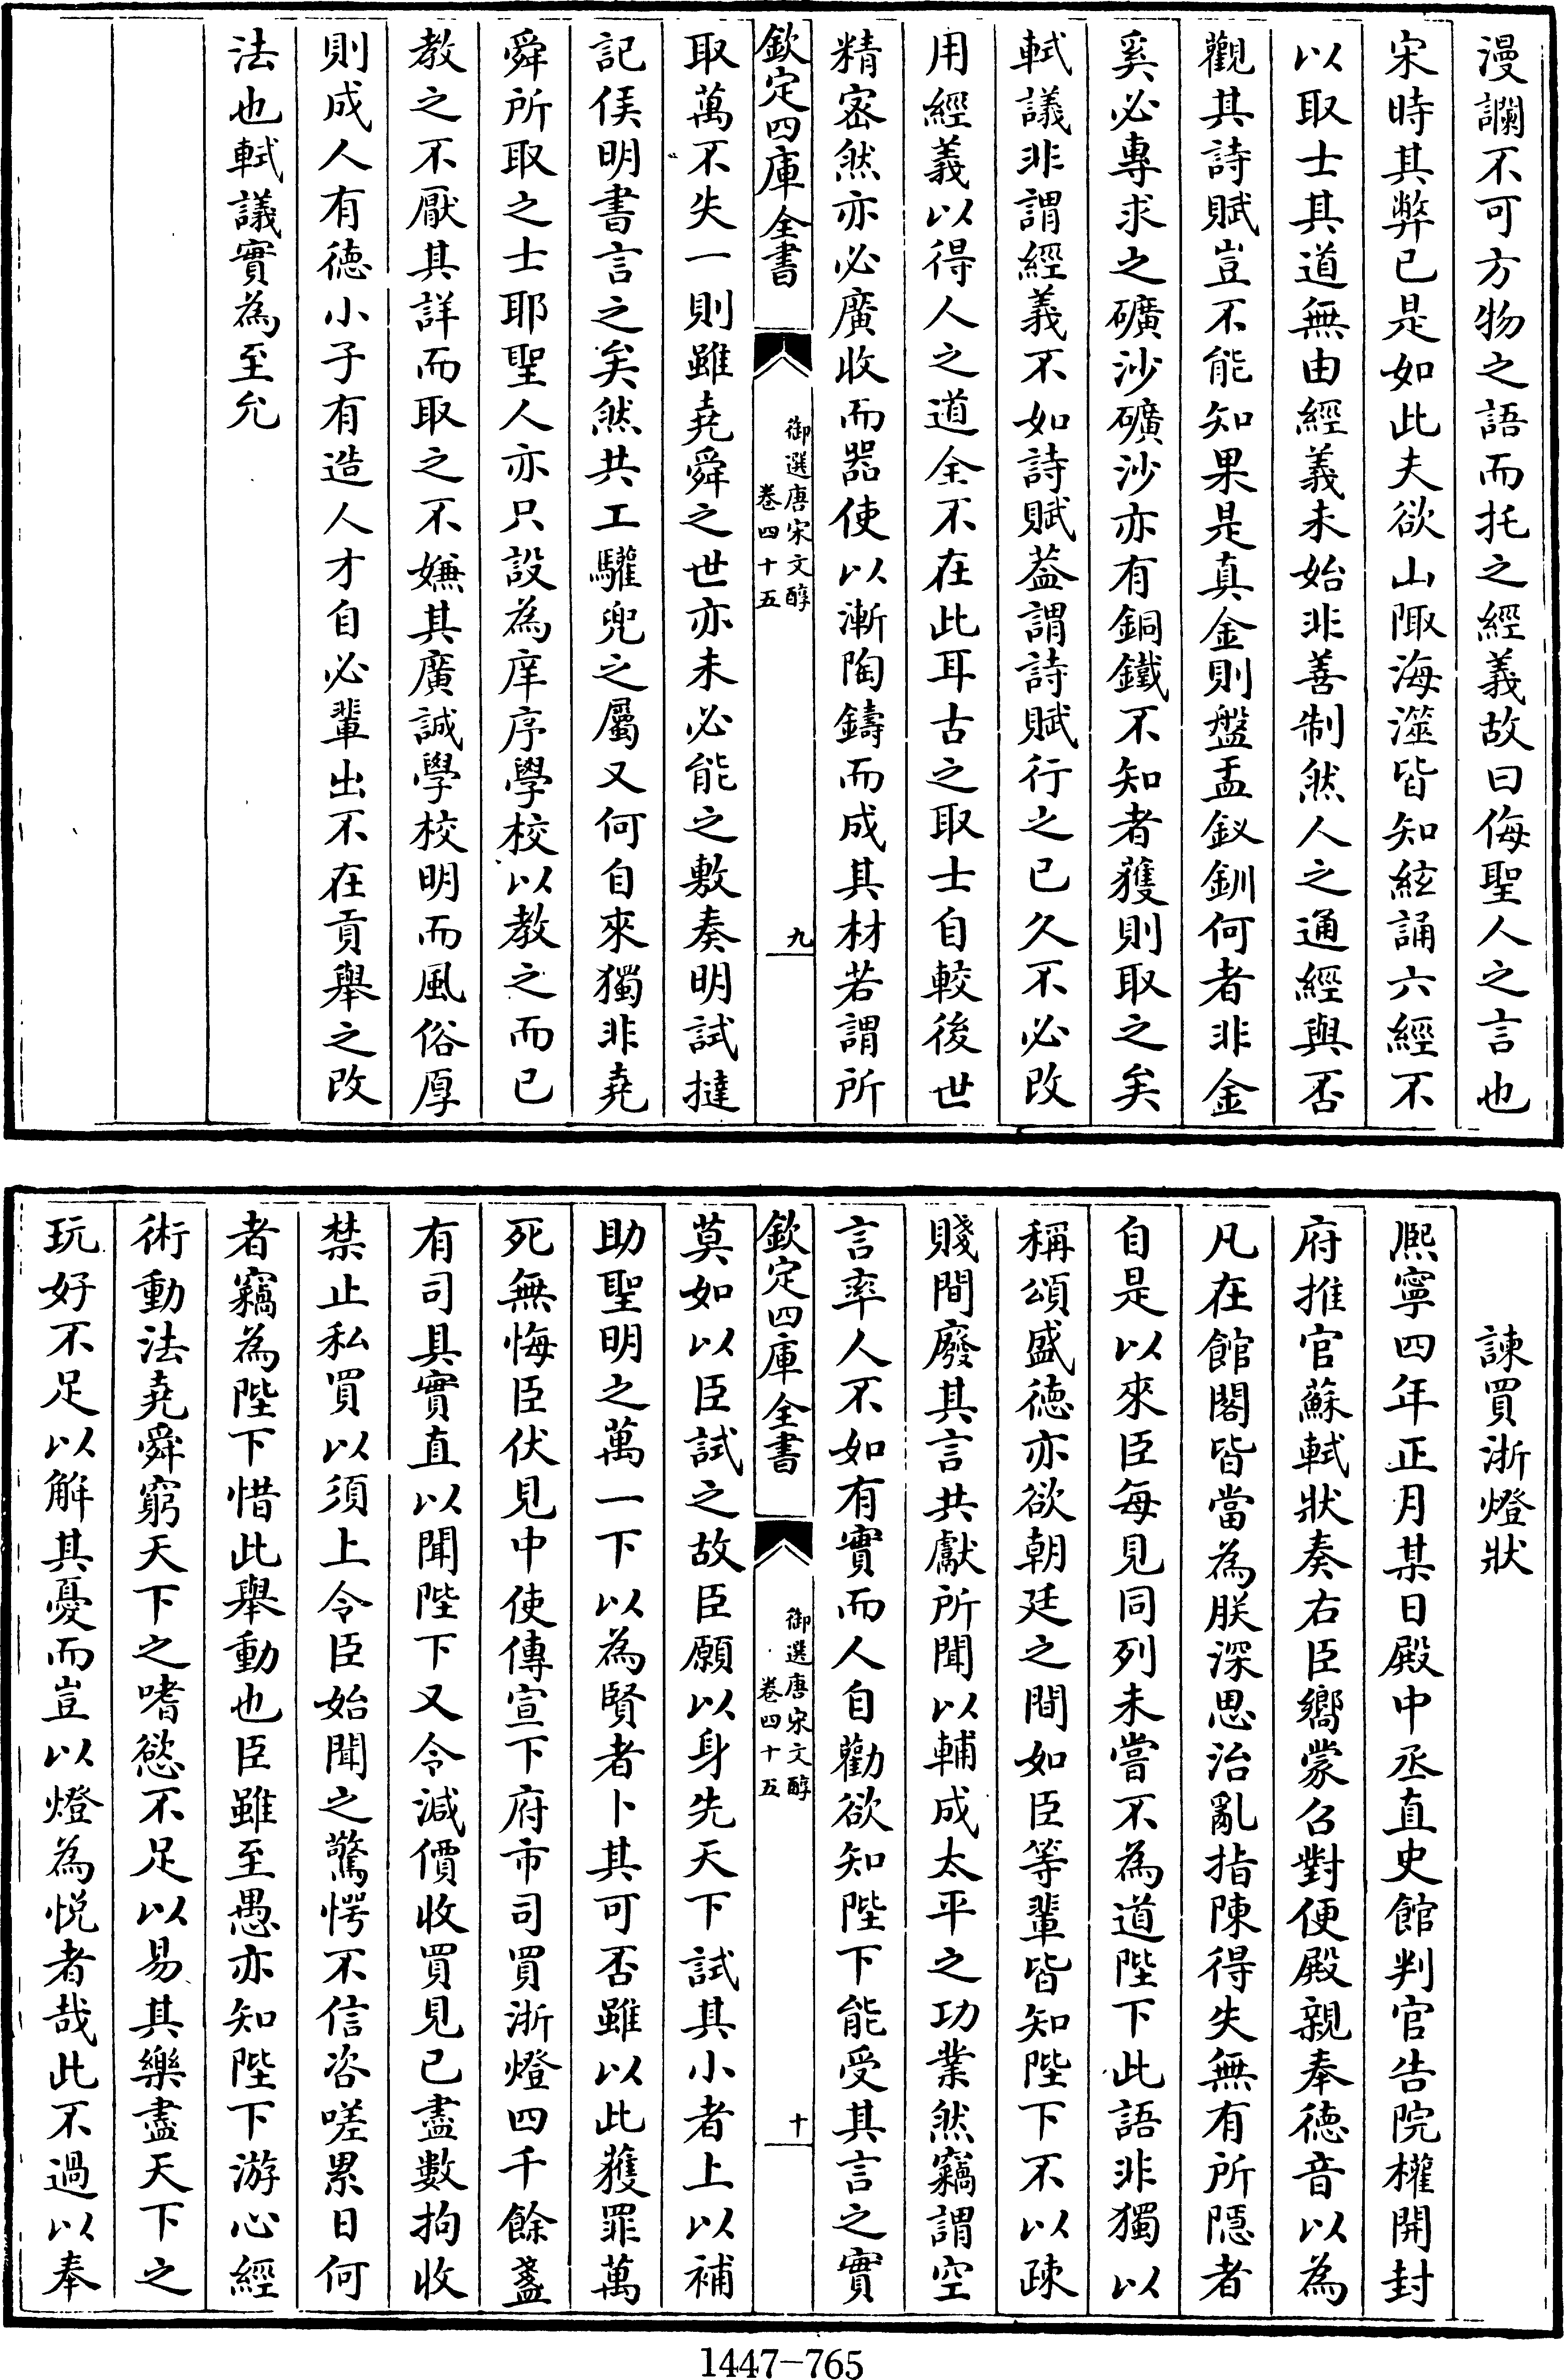 漫讕不可方物之語而托之經義故曰侮聖人之言也
宋時其弊已是如此夫欲山陬海澨皆知絃誦六經不
以取士其道無由經義未始非善制然人之通經與否
觀其詩賦豈不能知果是真金則盤盂釵釧何者非金
奚必專求之礦沙礦沙亦有銅鐵不知者獲則取之矣
軾議非謂經義不如詩賦葢謂詩賦行之已久不必改
用經義以得人之道全不在此耳古之取士自較後世
精宻然亦必廣收而器使以漸陶鑄而成其材若謂所
欽定四庫全書
御選唐宋文醇
卷四十五
九
取萬不失一則雖堯舜之世亦未必能之敷奏明試撻
記侯明書言之矣然共工驩兜之屬又何自來獨非堯
舜所取之士耶聖人亦只設為庠序學校以教之而已
教之不厭其詳而取之不嫌其廣誠學校明而風俗厚
則成人有德小子有造人才自必輩出不在貢舉之改
法也軾議實為至允
諫買浙燈狀
熈寧四年正月某日殿中丞直史館判官告院權開封
府推官蘇軾狀奏右臣嚮蒙召對便殿親奉德音以為
凡在館閣皆當為朕深思治亂指陳得失無有所隱者
自是以來臣每見同列未嘗不為道陛下此語非獨以
稱頌盛德亦欲朝廷之間如臣等輩皆知陛下不以疎
賤間廢其言共獻所聞以輔成太平之功業然竊謂空
言率人不如有實而人自勸欲知陛下能受其言之實
欽定四庫全書
御選唐宋文醇
卷四十五
十
莫如以臣試之故臣願以身先天下試其小者上以補
助聖明之萬一下以為賢者卜其可否雖以此獲罪萬
死無悔臣伏見中使傳宣下府市司買浙燈四千餘盞
有司具實直以聞陛下又令減價收買見已盡數拘收
禁止私買以須上令臣始聞之驚愕不信咨嗟累日何
者竊為陛下惜此舉動也臣雖至愚亦知陛下游心經
術動法堯舜窮天下之嗜慾不足以易其樂盡天下之
玩好不足以解其憂而豈以燈為悅者哉此不過以奉
1447-765